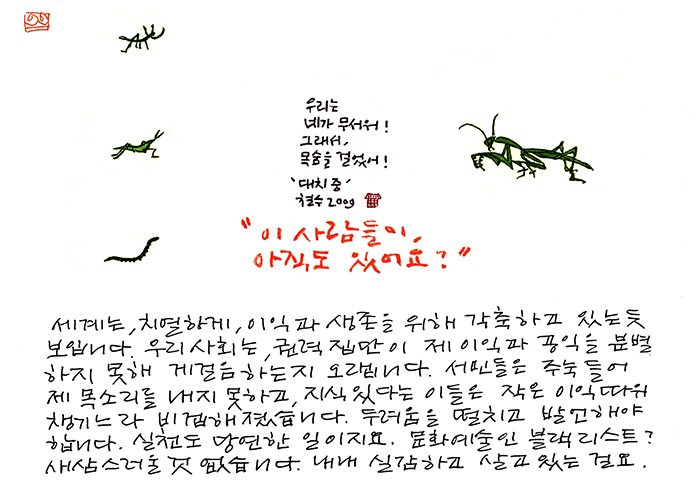 우리는
네가 무서워!
그래서,
목숨을 걸었어!
'대치 중'
철수 2009
"이 사람들이,
아직도 있어요?"
세계는, 치열하게, 이익과 생존을 위해 각축하고 있는듯
보입니다. 우리 사회는, 권력집단이 제 이익과 공익을 분별
하지 못해 게걸음하는지 오랩니다. 서민들은 주눅들어
제 목소리를 내지 못하고, 지식있다는 이들은 작은 이익따위
챙기느라 비겁해졌습니다. 두려움을 떨치고 발언해야
합니다. 실천도 당연한 일이지요. 문화예술인 블랙리스트?
새삼스러울 것 없습니다. 내내 실감하고 살고 있는 걸요.